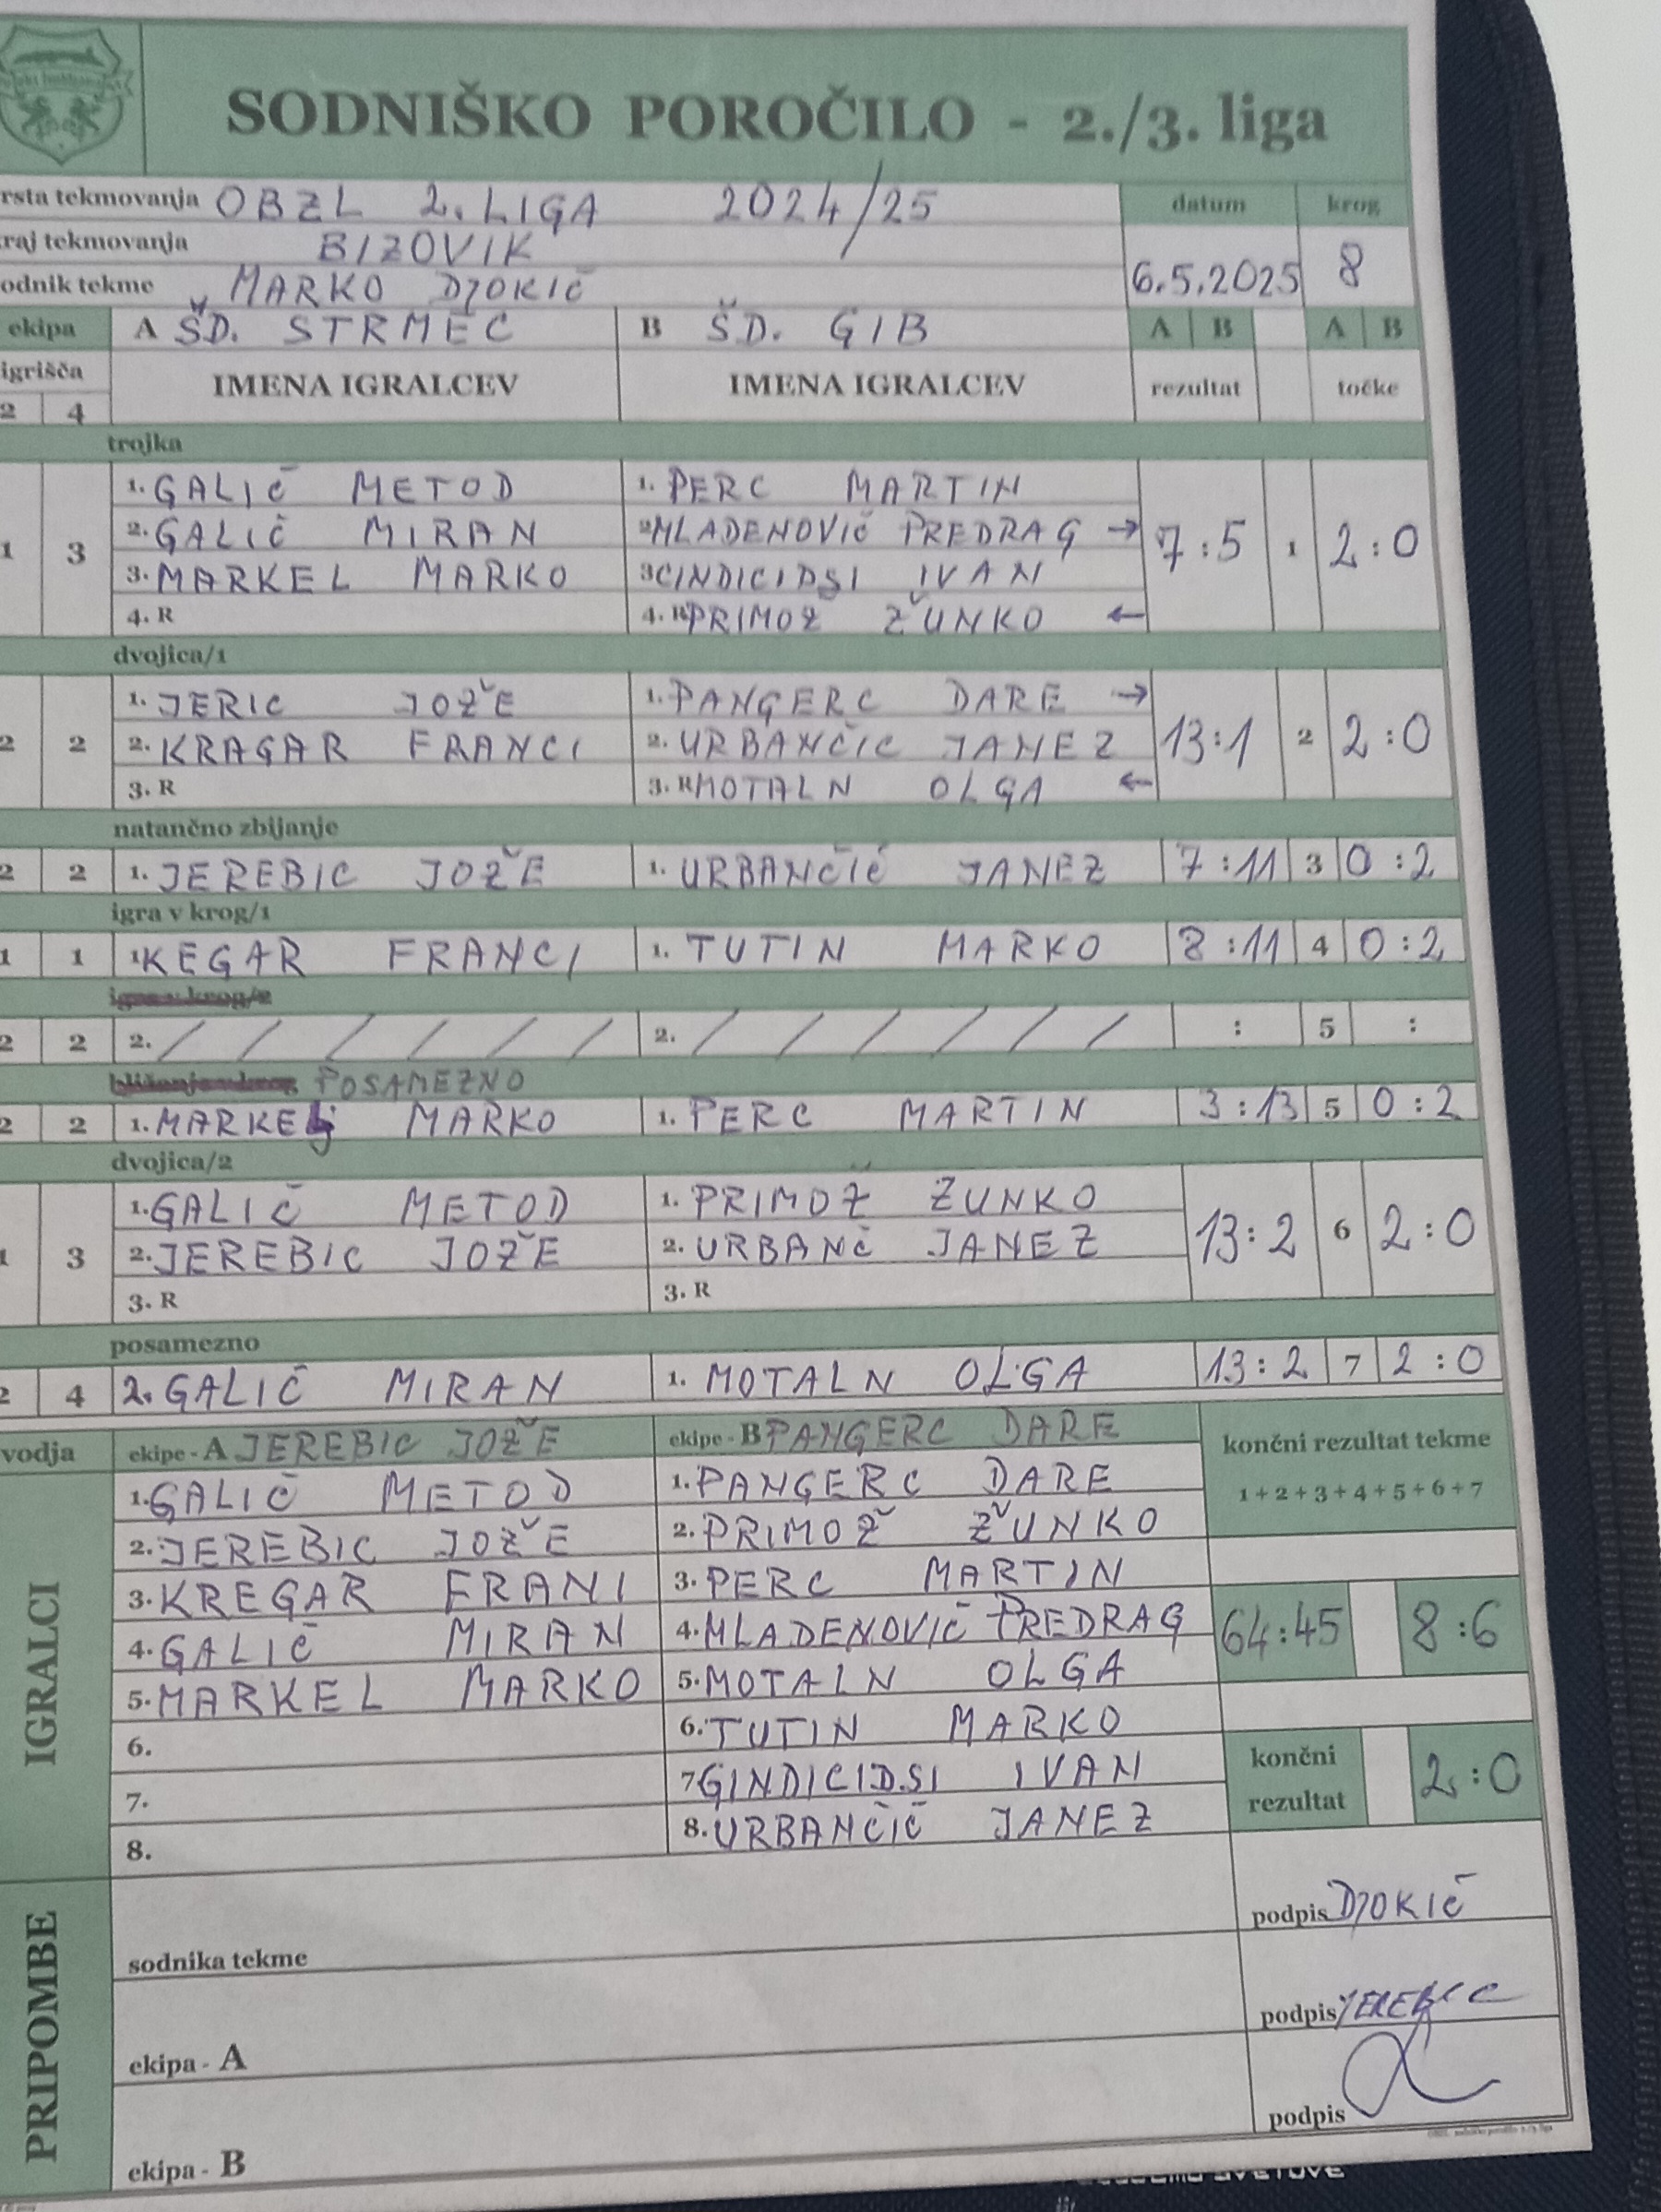 SODNIŠKO POROČILO - 2./3. liga
rsta tekmovanja OBZL 2. LIGA 2024/25 datum krog
raj tekmovanja BIZOVIK
odnik tekme MARKO DJOKIČ 6.5.2025 8
ekipa A ŠD. STRMEC B ŠD. GIB A B A B
igrišča IMENA IGRALCEV IMENA IGRALCEV rezultat točke
2 4
trojka
1. GALIČ METOD 1. PERC MARTIN
2. GALIČ MIRAN 2 MLADENOVIČ PREDRAG →
1 3 7:5 1 2:0
3. MARKEL MARKO 3 CINDICIDSI IVAN
4. R 4. R PRIMOŽ ŽUNKO ←
dvojica/1
1. JERIC JOŽE 1. PANGERC DARE →
2 2 2. KRAGAR FRANCI 2. URBANČIC JANEZ 13:1 2 2:0
3. R 3. R MOTALN OLGA ←
natančno zbijanje
2 2 1. JEREBIC JOŽE 1. URBANČIČ JANEZ 7:11 3 0:2
igra v krog/1
1 1 1 KEGAR FRANCI 1. TUTIN MARKO 8:11 4 0:2
igra v krog/2
2 2 2. / / / / / / 2. / / / / / / : 5 :
bližanje v krog POSAMEZNO
2 2 1. MARKELJ MARKO 1. PERC MARTIN 3:13 5 0:2
dvojica/2
1. GALIČ METOD 1. PRIMOŽ ŽUNKO
1 3 2. JEREBIC JOŽE 2. URBANČ JANEZ 13:2 6 2:0
3. R 3. R
posamezno
2 4 2. GALIČ MIRAN 1. MOTALN OLGA 13:2 7 2:0
vodja ekipe - A JEREBIC JOŽE ekipe - B PANGERC DARE končni rezultat tekme
1+2+3+4+5+6+7
IGRALCI
1. GALIČ METOD 1. PANGERC DARE
2. JEREBIC JOŽE 2. PRIMOŽ ŽUNKO
3. KREGAR FRANI 3. PERC MARTIN
4. GALIČ MIRAN 4. MLADENOVIČ PREDRAG 64:45 8:6
5. MARKEL MARKO 5. MOTALN OLGA
6. 6. TUTIN MARKO
7. 7 GINDICIDSI IVAN končni rezultat 2:0
8. 8. URBANČIČ JANEZ
PRIPOMBE
sodnika tekme podpis DJOKIČ
ekipa - A podpis JEREBIC
ekipa - B podpis